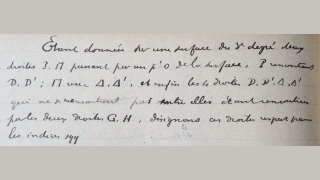 Étant données sur une surface du 3e degré deux
droites J. Π passant par un p't O de la surface, J rencontrant
D. D' ; Π voir Δ. Δ', et enfin les 4 droites D. D'. Δ. Δ'
qui ne rencontrent pas entre elles étant rencontrées
par les deux droites G. H, désignons ces droites respect par
les indices